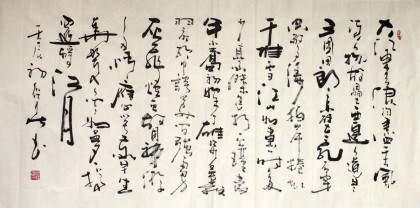 大江東去浪淘盡千古風
流人物故壘西邊人道是
三國周郎赤壁亂石穿
空驚濤拍岸捲起
千堆雪江山如畫一時多
少豪傑遙想公瑾當
年小喬初嫁了雄姿英發
羽扇綸巾談笑間強虜
灰飛煙滅故國神遊
多情應笑我早生
華髮人間如夢一尊
還酹江月